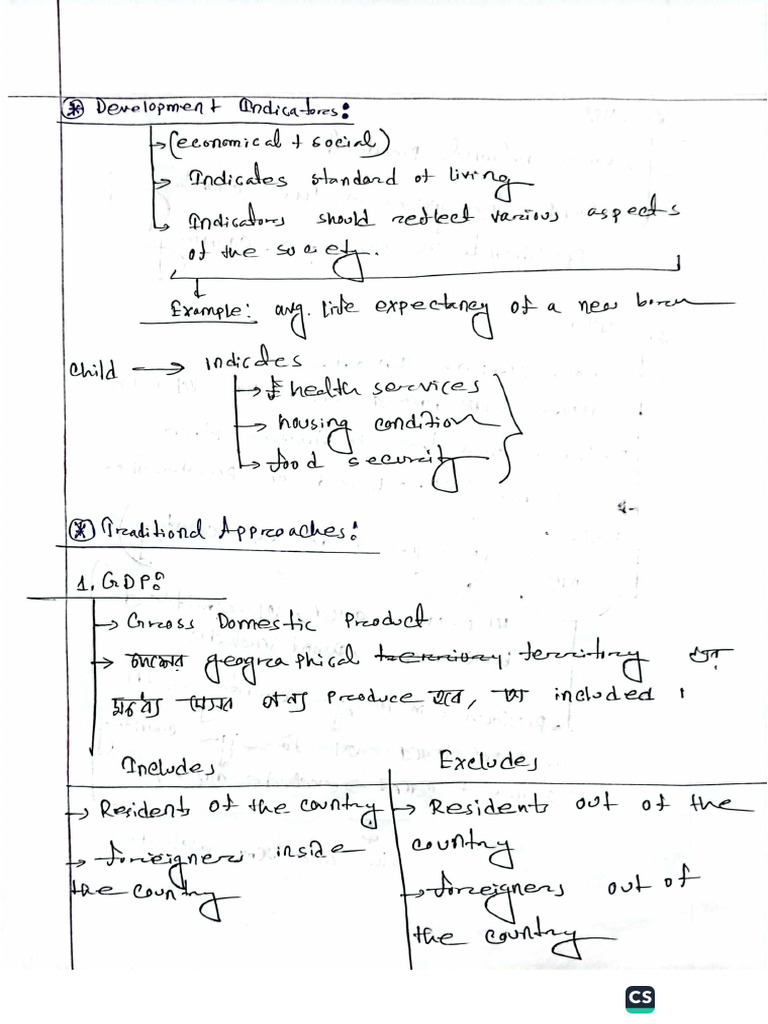 * Development Indicatores:
→ (economical + social)
→ Indicates standard of living
→ Indicators should reflect various aspects
of the society.
Example: avg. life expectancy of a new born
child → indicates
→ health services
→ housing condition
→ food security
* Traditional Approaches:
1. GDP:
→ Gross Domestic Product
→ geographical territory এর
মধ্যে যেসব পণ্য produce হবে, তা included ।
Includes
Excludes
→ Residents of the country
→ foreigners inside
the country
→ Residents out of the
country
→ foreigners out of
the country
CS